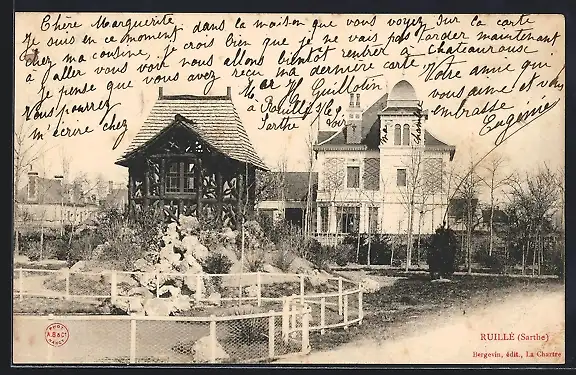 Chère Marguerite dans la maison que vous voyez sur la carte
Je suis en ce moment, je crois bien que je ne vais pas tarder maintenant
chez ma cousine, nous allons bientôt rentrer à Chateauroux
à aller vous voir
je pense que vous avez reçu ma dernière carte. Votre amie qui
Vous pourrez vous aime et vous
m'écrire chez Mor Mr Guillotin embrasse
à Ruillé s/
Sarthe Eugénie
RUILLÉ (Sarthe)
Bergevin, édit., La Chartre
A.B & Cie
NANCY